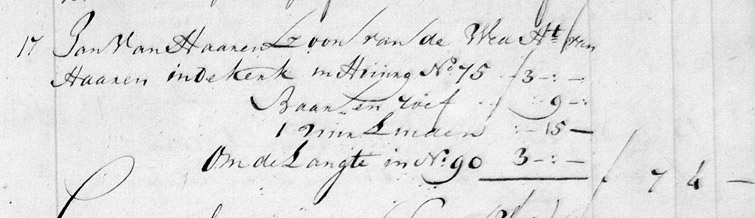 17 Jan Van Haaren Zoon van de Wed Ht van
Haaren in de kerk in Huurg No 75 f 3 -:-
Baar en roef - 9 -
1 uur Luiden :- 15 -
Om de Langte in No. 90 3 -:- f 7 4 -